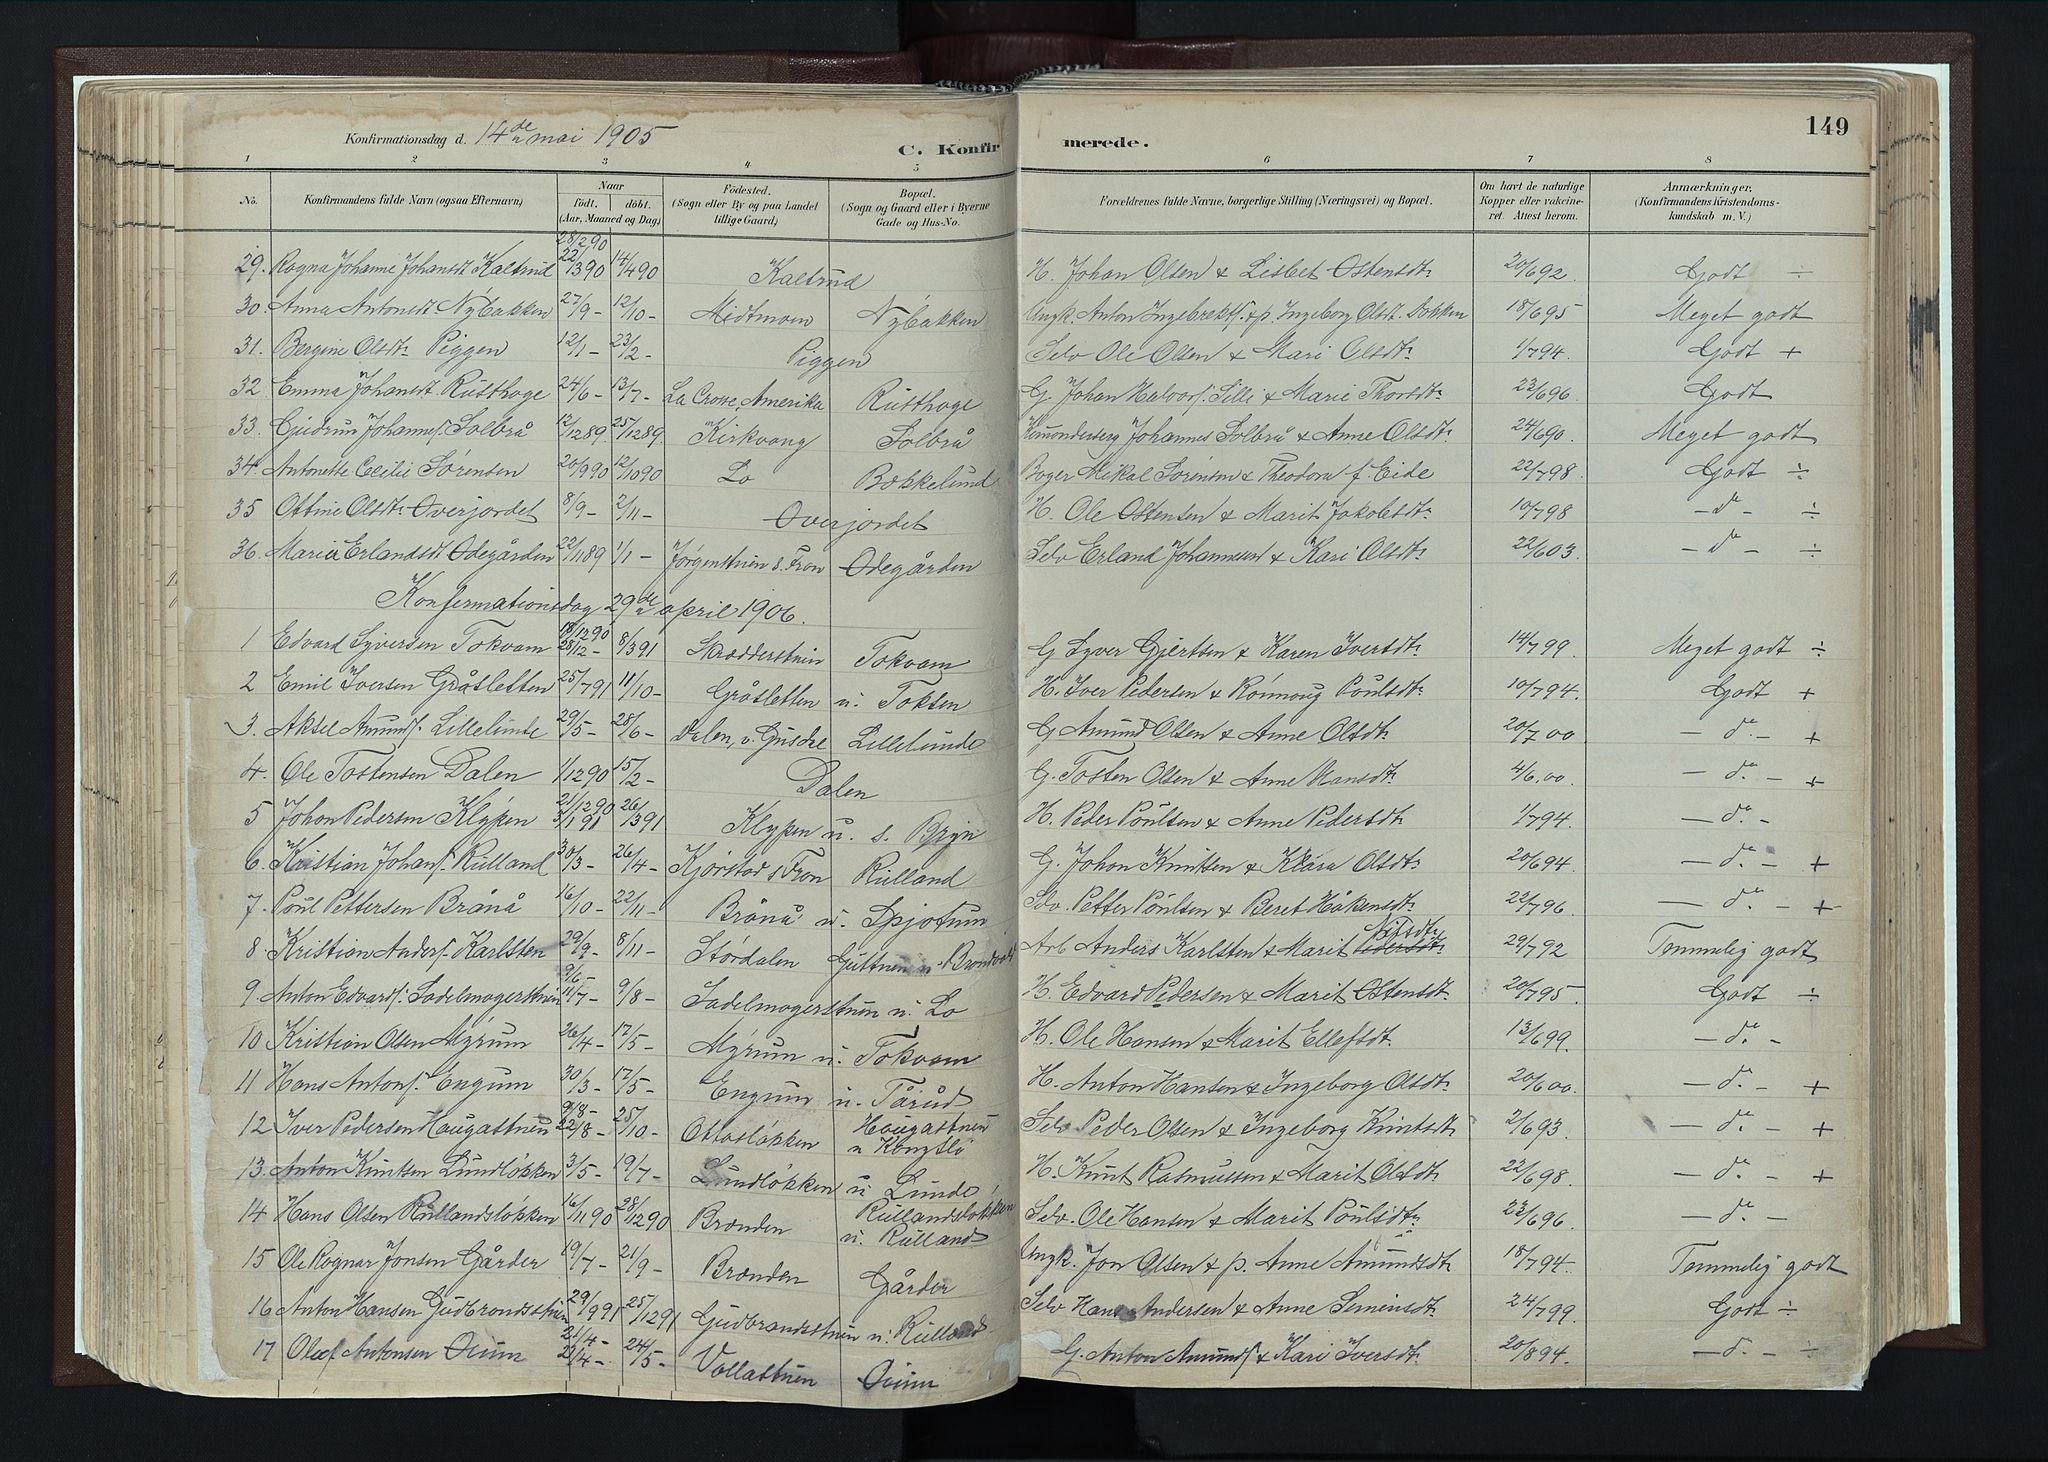 149
Konfirmationsdag d. 14de mai 1905
C. Konfirmerede.
1 2 3 4 5 6 7 8
No. | Konfirmandens fulde Navn (ogsaa Efternavn) | Naar födt. döbt. (Aar, Maaned og Dag) | Födested. (Sogn eller By og paa Landet tillige Gaard) | Bopæl. (Sogn og Gaard eller i Byerne Gade og Hus-No. | Forældrenes fulde Navne, borgerlige Stilling (Næringsvei) og Bopæl. | Om havt de naturlige Kopper eller vakcineret. Attest herom. | Anmærkninger. (Konfirmandens Kristendomskundskab m. V.)
29. Ragna Johanne Johansdt Kaltrud 28/2 90 22/3 90 14/4 90 Kaltrud H. Johan Olsen & Lisbet Ostensdtr 20/6 92. Godt ÷
30. Anna Antonsdt Nÿbakken 27/9 - 12/10 - Midtmoen Nÿbakken Ungk. Anton Ingebrekts. & p. Ingeborg Olsdt. Bakken 18/6 95 Meget godt
31. Bergine Olsdtr Piggen 12/1 - 23/2 - Piggen Selv Ole Olsen & Mari Olsdtr 1/7 94. Godt +
32 Emma Johansdt Rusthoge 24/6 - 13/7 - La Crosse, Amerika Rusthoge G. Johan Halvors. Lilli & Marie Thorsdtr 23/6 96. Godt
33. Gudrun Johannes. Solbrå 12/12 89. 25/12 89. Kirkvang Solbrå Johannes Solbrå & Anne Olsdtr 24/6 90. Meget godt
34. Antonette Cecilie Sörensen 20/9 90 12/10 90 Lo Bækkelund Mikal Sörensen & Theodora f. Eide 22/7 98. Godt ÷
35 Ottine Olsdtr Överjordet 8/9 - 2/11 - Överjordet H. Ole Ostensen & Marit Jakobsdtr 10/7 98 - do - ÷
36. Maria Erlandsdt Ödegården 22/11 89 1/1 - Jörgenstuen s. Fron Ödegården Selv Erland Johannessen & Kari Olsdtr 22/6 03. - do - ÷
Konfirmationsdag 29de april 1906.
1 Edvard Syversen Tokvam 18/12 90 28/12 - 8/3 91 Skrædderstuen Tokvam G Syver Gjertsen & Karen Iversdtr 14/7 99. Meget godt ÷
2 Emil Iversen Gråsletten 25/7 91 11/10 - Gråsletten u. Toksen H. Iver Pedersen & Rönnoug Poulsdtr 10/7 94. Godt +
3. Aksel Amunds. Lillelunde 29/5 - 28/6 - Dalen, Lillelunde G Amund Olsen & Anne Olsdtr 20/7 00 - do. - +
4. Ole Tostensen Dalen 1/12 90 15/2 - Dalen G. Tosten Olsen & Anne Hansdtr 4/6 00. - do. - +
5 Johan Pedersen Klÿpen 21/12 90 3/1 91 26/3 91 Klypen u. s. Bryn H. Peder Poulsen & Anne Pedersdtr 1/7 94. - do. -
6. Kristian Johans. Rulland 30/3 - 26/4 - Kjörstad s Fron Rulland G. Johan Knutsen & Klara Olsdtr 20/6 94. - do. - +
7. Poul Pettersen Brånå 16/10 - 22/11 - Brånå u. Spjotum Selv. Petter Poulsen & Beret Håkensdtr 22/7 96. - do. - +
8. Kristian Anders. Karlsten 29/9 - 8/11 - Stördalen Arb Anders Karlsten & Marit Pedersdtr 29/7 92 Temmelig godt
9. Anton Edvards. Sadelmagerstuen 9/6 - 11/7 - 9/8 - Sadelmagerstuen u. Lo H. Edvard Pedersen & Marit Ostensdtr 20/7 95. Godt ÷
10 Kristian Olsen Mÿrum 26/4 - 17/5 - Mÿrum u. Tokvam H. Ole Hansen & Marit Ellefsdtr 13/6 99. - do. -
11 Hans Antons. Engum 30/3 - 17/5 - Engum u. Tårud H. Anton Hansen & Ingeborg Olsdtr 20/6 00. - do. - +
12 Iver Pedersen Haugastuen 9/8 - 22/8 - 25/10 - Ottoslökken Haugastuen u Selv Peder Olsen & Ingeborg Knutsdtr 2/6 93. - do. - +
13. Anton Knutsen Lundlökken 3/5 - 19/7 - Lundlökken u. Lunde H. Knut Rasmussen & Marit Olsdtr 22/6 98. - do. - +
14 Hans Olsen Rullandslökken 16/11 90 28/12 90 Brænden Rullandslökken u. Rulland Selv. Ole Hansen & Marit Poulsdtr 23/6 96. - do. -
15 Ole Ragnar Jonsen Gårder 19/7 - 21/9 - Brænden Gårder Ungk. Jon Olsen & p. Anne Amundsdtr 18/7 94. Temmelig godt
16 Anton Hansen Gudbrandsstuen 29/9 91 25/12 91 Gudbrandsstuen u. Rulland Selv Hans Andersen & Anne Simensdtr 24/7 99. Godt ÷
17 Olaf Antonsen Öium 21/4 - 22/4 - 24/5 - Vollastuen Öium G. Anton Amunds. & Kari Iversdtr 20/8 94. - do. - ÷